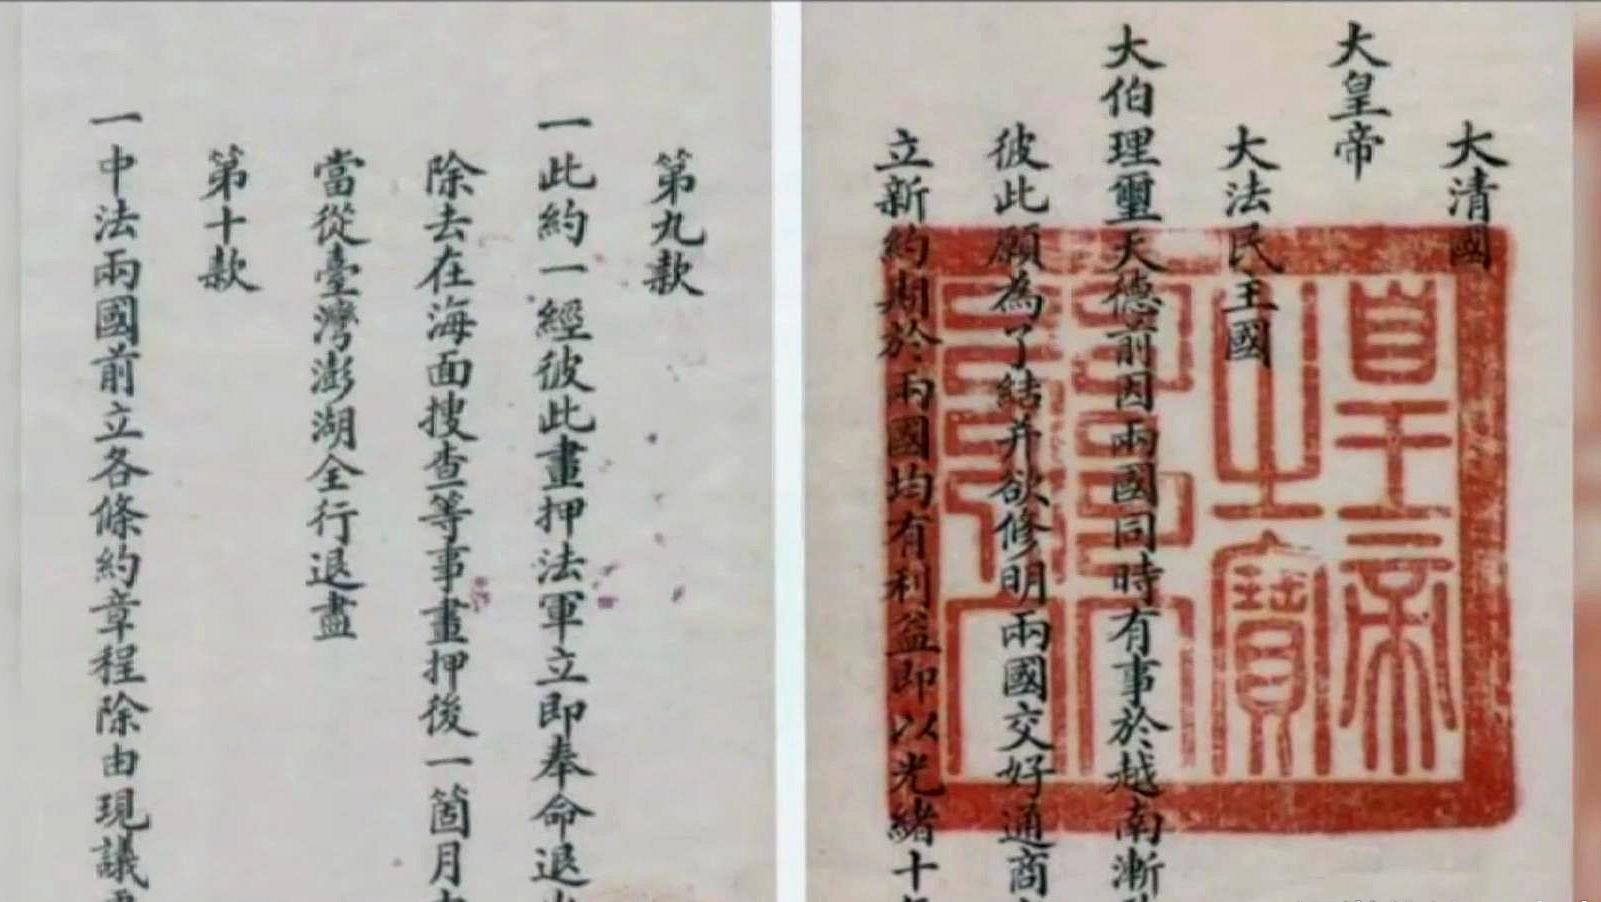 大清國
大皇帝
大法民主國
大伯理璽天德前因兩國同時有事於越南漸
彼此願為了結并欲修明兩國交好通商
立新約期於兩國均有利益即以光緒十
皇帝
之寶
第九款
一此約一經彼此畫押法軍立即奉命退
除去在海面搜查等事畫押後一箇月
當從臺灣澎湖全行退盡
第十款
一中法兩國前立各條約章程除由現議